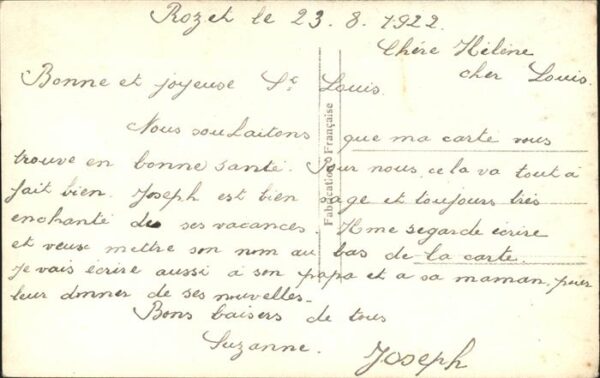 Rozet le 23.8.1922.
Chére Hélène
cher Louis.
Bonne et joyeuse St Louis.
Nous souhaitons que ma carte vous
trouve en bonne santé. Pour nous cela va tout à
fait bien. Joseph est bien sage et toujours très
enchanté de ses vacances. Il me regarde écrire
et veux mettre son nom au bas de la carte.
Je vais écrire aussi à son papa et a sa maman pour
leur donner de ses nouvelles.
Bons baisers de tous
Suzanne.
Joseph
Fabrication Française